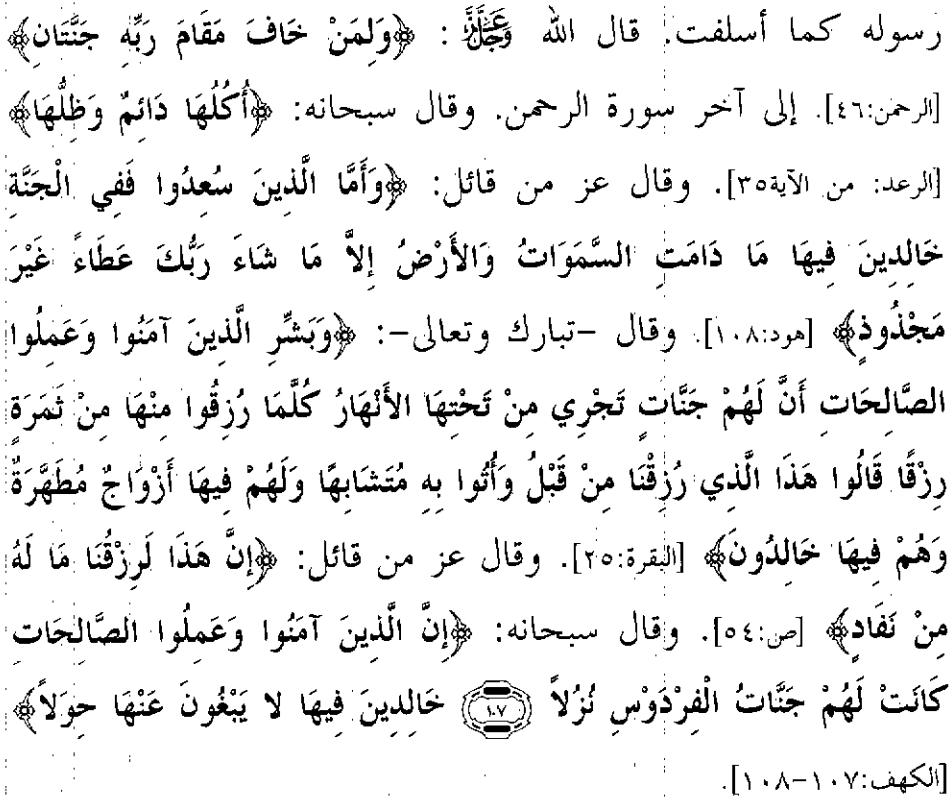 رسوله كما أسلفت. قال الله ﷻ : ﴿وَلِمَنْ خَافَ مَقَامَ رَبِّهِ جَنَّتَانِ﴾
[الرحمن:٤٦]. إلى آخر سورة الرحمن. وقال سبحانه: ﴿أُكُلُهَا دَائِمٌ وَظِلُّهَا﴾
[الرعد: من الآية٣٥]. وقال عز من قائل: ﴿وَأَمَّا الَّذِينَ سُعِدُوا فَفِي الْجَنَّةِ
خَالِدِينَ فِيهَا مَا دَامَتِ السَّمَوَاتُ وَالأَرْضُ إِلاَّ مَا شَاءَ رَبُّكَ عَطَاءً غَيْرَ
مَجْذُوذٍ﴾ [هود:١٠٨]. وقال –تبارك وتعالى–: ﴿وَبَشِّرِ الَّذِينَ آمَنُوا وَعَمِلُوا
الصَّالِحَاتِ أَنَّ لَهُمْ جَنَّاتٍ تَجْرِي مِنْ تَحْتِهَا الأَنْهَارُ كُلَّمَا رُزِقُوا مِنْهَا مِنْ ثَمَرَةٍ
رِزْقًا قَالُوا هَذَا الَّذِي رُزِقْنَا مِنْ قَبْلُ وَأُتُوا بِهِ مُتَشَابِهًا وَلَهُمْ فِيهَا أَزْوَاجٌ مُطَهَّرَةٌ
وَهُمْ فِيهَا خَالِدُونَ﴾ [البقرة:٢٥]. وقال عز من قائل: ﴿إِنَّ هَذَا لَرِزْقُنَا مَا لَهُ
مِنْ نَفَادٍ﴾ [ص:٥٤]. وقال سبحانه: ﴿إِنَّ الَّذِينَ آمَنُوا وَعَمِلُوا الصَّالِحَاتِ
كَانَتْ لَهُمْ جَنَّاتُ الْفِرْدَوْسِ نُزُلاً ١٠٧ خَالِدِينَ فِيهَا لا يَبْغُونَ عَنْهَا حِوَلاً﴾
[الكهف:١٠٧–١٠٨].